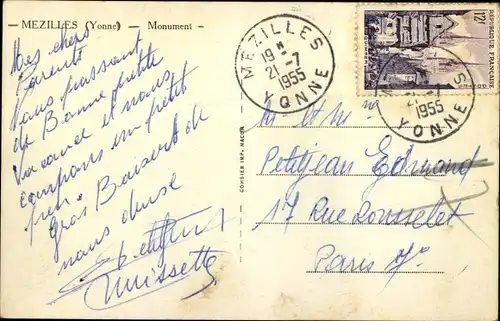 MEZILLES (Yonne) — Monument —
Mes chers
Parents
nous passont
de Bonne petite
Vacance et nous
couchons un petit
peu
Gros Baisert de
nous deuse
Muissette
COMBIER IMP. MACON
MEZILLES
19 H
21-7
1955
YONNE
12F
REPUBLIQUE FRANCAISE
21-7
1955
YONNE
Petitjean Edmond
17 Rue Rousselet
Paris 7e